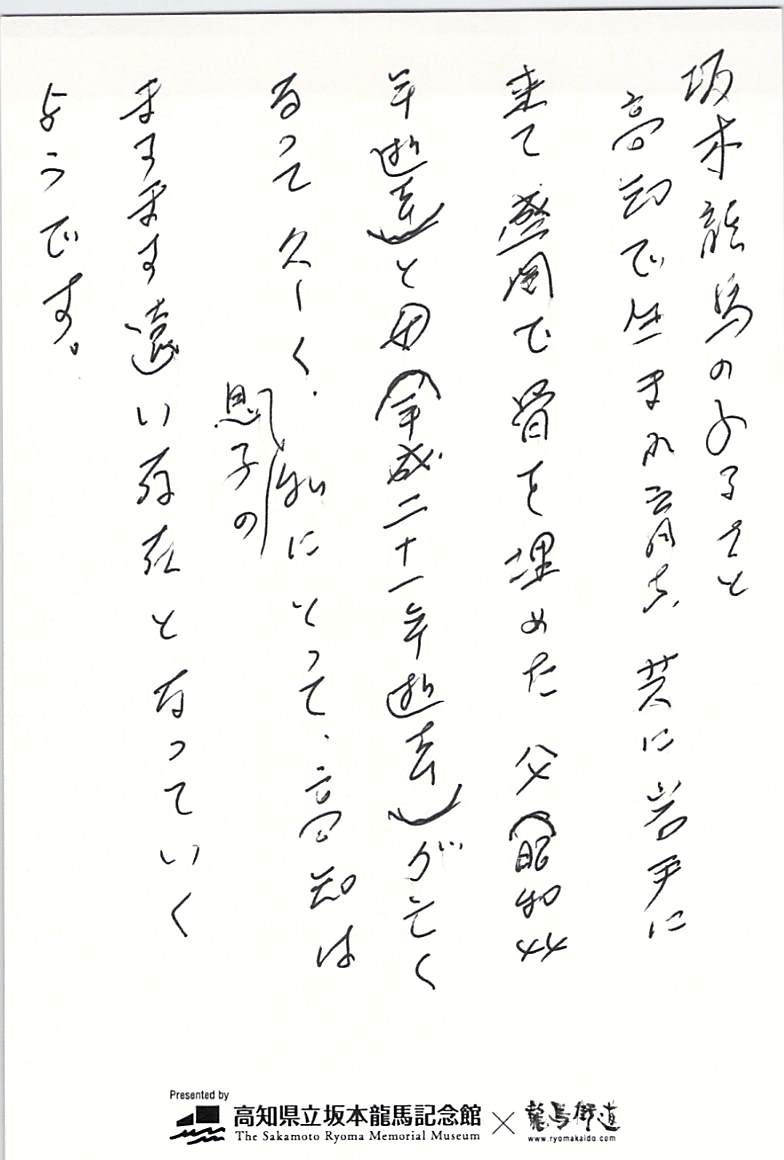 坂本龍馬のお子さと
高知で生まれ育ち、共に岩手に
来て盛岡で骨を埋めた父(昭和44
年逝去)と母(平成二十一年逝去)が亡く
なって久しく、私にとって、高知は
息子の
ますます遠い存在となっていく
ようです。
Presented by
高知県立坂本龍馬記念館
The Sakamoto Ryoma Memorial Museum
×
龍馬街道
www.ryomakaido.com